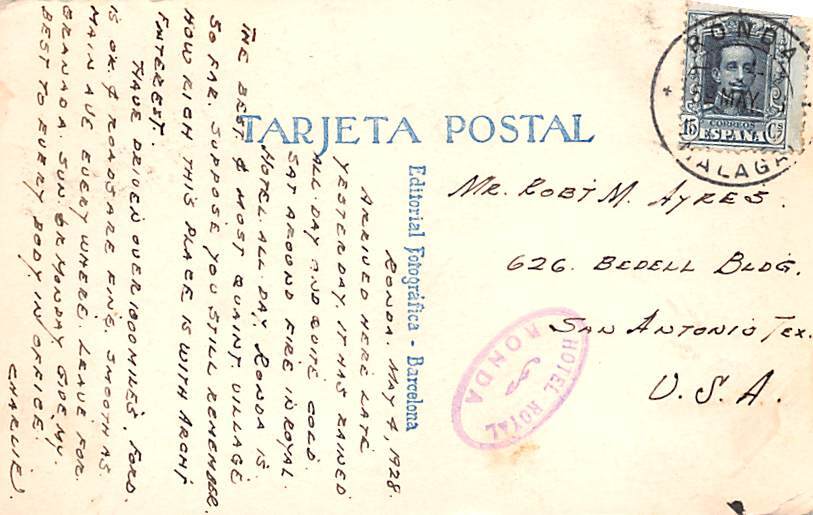 TARJETA POSTAL
Editorial Fotográfica - Barcelona
RONDA. MAY 4, 1928.
ARRIVED HERE LATE
YESTERDAY. IT HAS RAINED
ALL DAY AND QUITE COLD.
SAT AROUND FIRE IN ROYAL
HOTEL ALL DAY. RONDA IS
THE BEST & MOST QUAINT VILLAGE
SO FAR. SUPPOSE YOU STILL REMEMBER
HOW RICH THIS PLACE IS WITH ARCHT
INTEREST.
HAVE DRIVEN OVER 1000 MILES. FORD
IS O.K. & ROADS ARE FINE. SMOOTH AS
MAIN AVE EVERY WHERE. LEAVE FOR
GRANADA SUN. OR MONDAY. GIVE MY
BEST TO EVERY BODY IN OFFICE.
CHARLIE.
RONDA
MAY
MALAGA
15 CORREOS Cs
ESPAÑA
MR. ROBT M. AYRES.
626. BEDELL BLDG.
SAN ANTONIO TEX.
U.S.A.
HOTEL ROYAL
RONDA